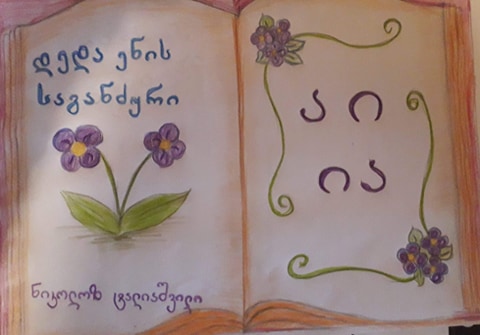 დედა ენის
საგანძური
ნიკოლოზ ცალიაშვილი
აი
ია